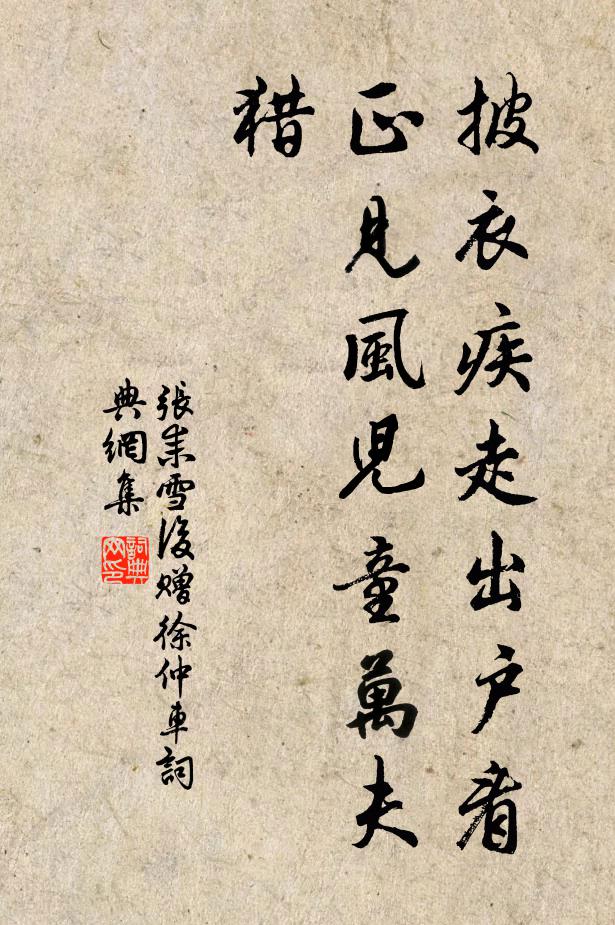 披衣疾走出户看
正見風兒童萬夫
猎
張耒雪後贈徐仲車詞
典網集
詞典
网印